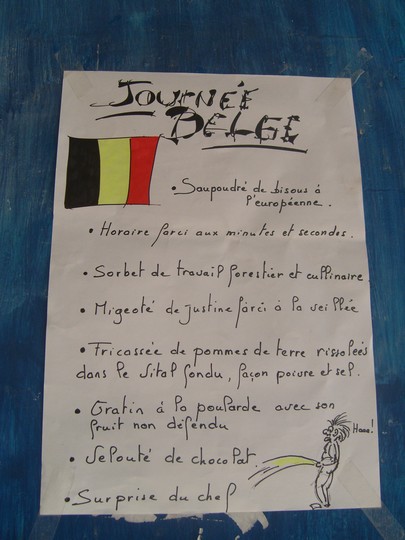 JOURNÉE
BELGE
• Saupoudré de bisous à
l'européenne.
• Horaire farci aux minutes et secondes.
• Sorbet de travail forestier et cullinaire
• Migeoté de justine farci à la veillée
• Fricassée de pommes de terre rissolées
dans le vital fondu, façon poivre et sel.
• Gratin à la poularde avec son
fruit non défendu
Haaa!
• Velouté de chocolat.
• Surprise du chef